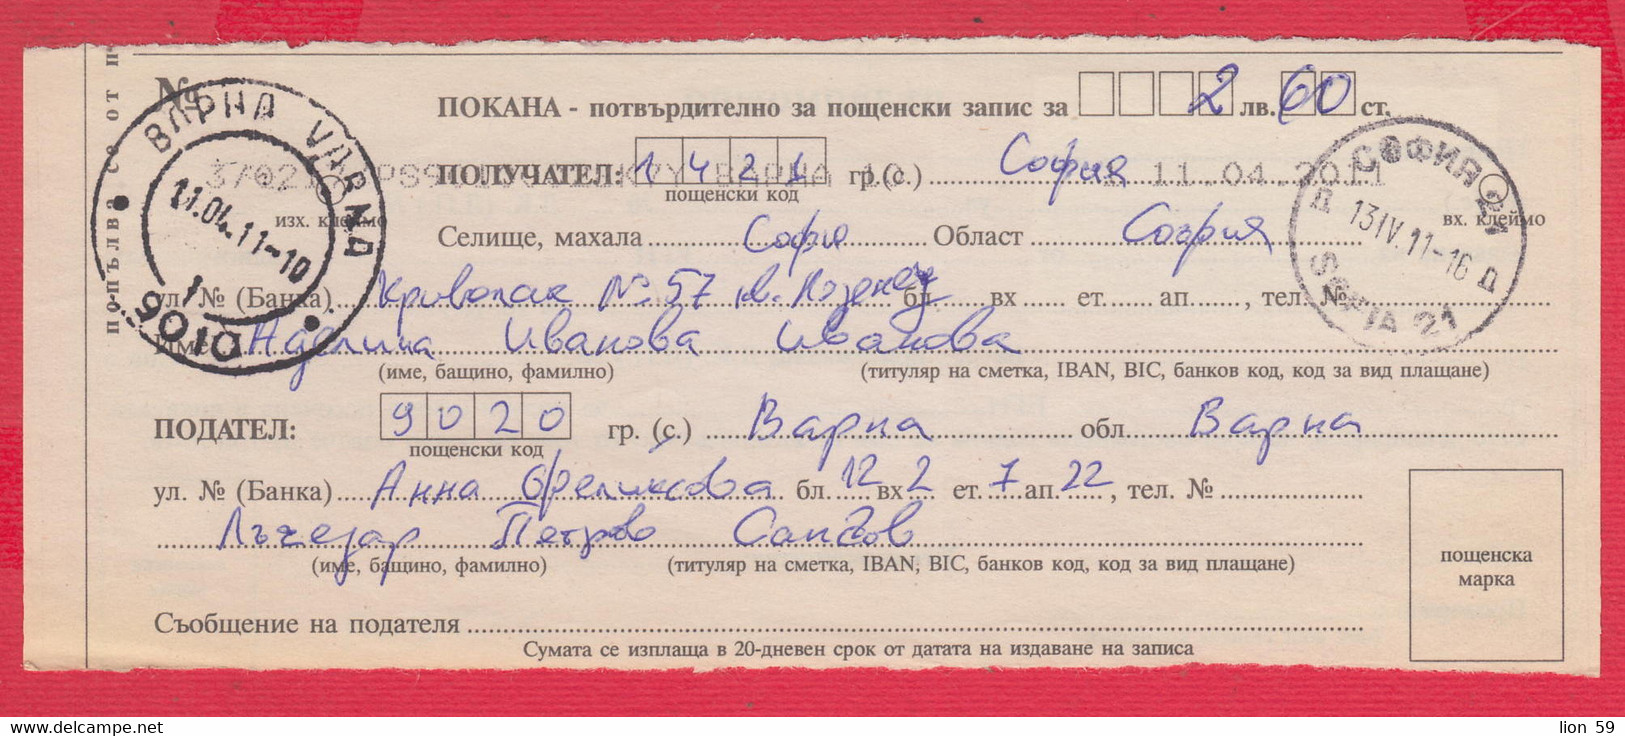 № ПОКАНА - потвърдително за пощенски запис за 2 лв. 60 ст.
ПОЛУЧАТЕЛ: 1421 гр.(с.) София 11.04.2011
пощенски код
изх. клеймо вх. клеймо
Селище, махала София Област София
ул. № (Банка) Криволак № 57 кв. Лозенец бл. вх ет. ап. , тел. №
Име Аделина Иванова Иванова
(име, бащино, фамилно) (титуляр на сметка, IBAN, BIC, банков код, код за вид плащане)
ПОДАТЕЛ: 9020 гр. (с.) Варна обл Варна
пощенски код
ул. № (Банка) Анна Феликсова бл. 12 вх 2 ет. 7 ап. 22 , тел. №
Лъчезар Петров
(име, бащино, фамилно) (титуляр на сметка, IBAN, BIC, банков код, код за вид плащане)
пощенска
марка
Съобщение на подателя
Сумата се изплаща в 20-дневен срок от датата на издаване на записа
попълва се от п
ВАРНА VARNA
11.04.11-10
1
9010
СОФИЯ 21
Д 13IV.11-16 Д
SOFIA 21
lion 59